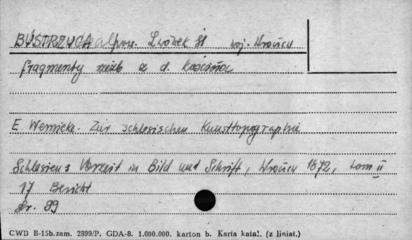 BYSTRZYCA pow. Lwówek Śl woj. Wrocław
fragmenty mieb z d. kościoła
E Wernicke. Zur schlesischen Kunsttopographie
Schlesiens Vorzeit in Bild und Schrift, Wrocław 1872, tom II
17 Bericht
str. 89
CWD E-15b.zam. 2899/P. GDA-8. 1.000.000. karton b. Karta katal. (z liniat.)